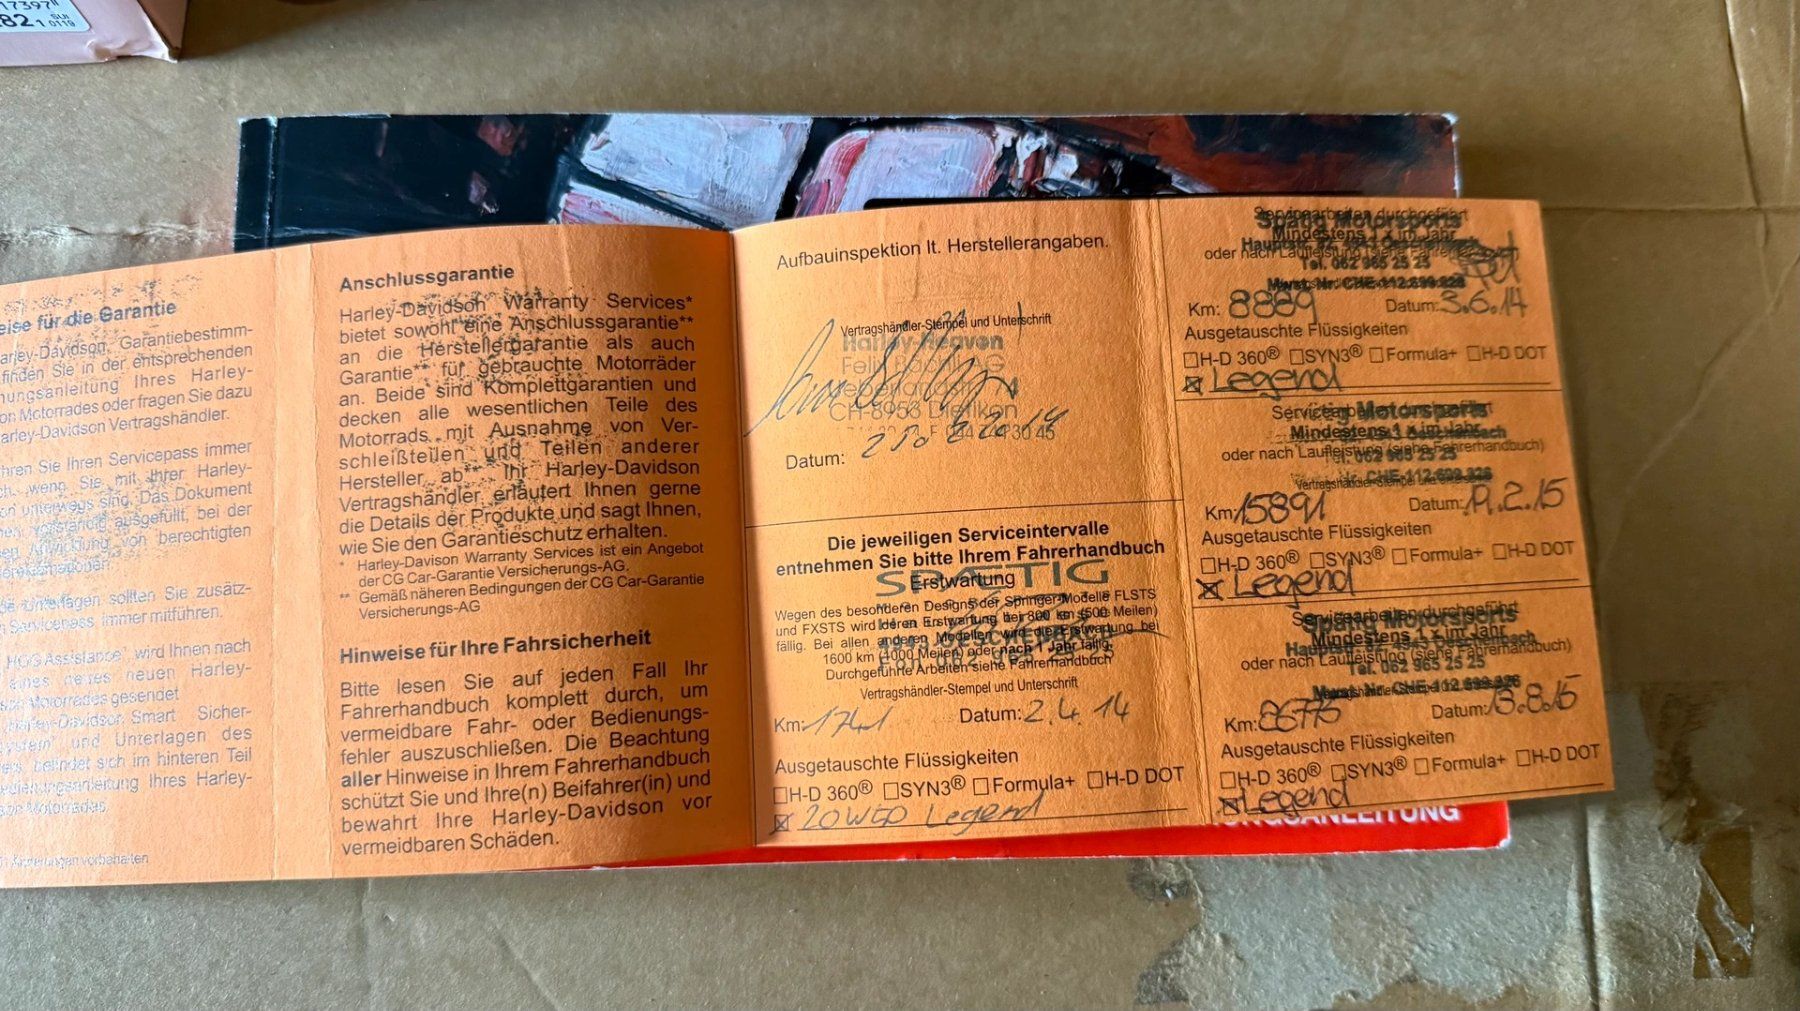 17397
82 1 SUI
0119
eise für die Garantie
arley-Davidson Garantiebestimm-
finden Sie in der entsprechenden
nungsanleitung Ihres Harley-
on Motorrades oder fragen Sie dazu
arley-Davidson Vertragshändler.
hren Sie Ihren Servicepass immer
ch, wenn Sie mit Ihrer Harley-
on unterwegs sind. Das Dokument
vollständig ausgefüllt, bei der
von berechtigten
Unterlagen sollten Sie zusätz-
Servicepass immer mitführen.
HOG Assistance" wird Ihnen nach
eines neuen Harley-
Motorrades gesendet
Harley-Davidson Smart Sicher-
system" und Unterlagen des
befindet sich im hinteren Teil
Ihres Harley-
Motorrades.
Änderungen vorbehalten
Anschlussgarantie
Harley-Davidson Warranty Services*
bietet sowohl eine Anschlussgarantie**
an die Herstellergarantie als auch
Garantie** für gebrauchte Motorräder
an. Beide sind Komplettgarantien und
decken alle wesentlichen Teile des
Motorrads mit Ausnahme von Ver-
schleißteilen und Teilen anderer
Hersteller ab** Ihr Harley-Davidson
Vertragshändler erläutert Ihnen gerne
die Details der Produkte und sagt Ihnen,
wie Sie den Garantieschutz erhalten.
* Harley-Davison Warranty Services ist ein Angebot
der CG Car-Garantie Versicherungs-AG.
** Gemäß näheren Bedingungen der CG Car-Garantie
Versicherungs-AG
Hinweise für Ihre Fahrsicherheit
Bitte lesen Sie auf jeden Fall Ihr
Fahrerhandbuch komplett durch, um
vermeidbare Fahr- oder Bedienungs-
fehler auszuschließen. Die Beachtung
aller Hinweise in Ihrem Fahrerhandbuch
schützt Sie und Ihre(n) Beifahrer(in) und
bewahrt Ihre Harley-Davidson vor
vermeidbaren Schäden.
Aufbauinspektion lt. Herstellerangaben.
Vertragshändler-Stempel und Unterschrift
Harley-Heaven
CH-8953 Dietikon
Datum:
Die jeweiligen Serviceintervalle
entnehmen Sie bitte Ihrem Fahrerhandbuch
SPÆTIG
Erstwartung
Wegen des besonderen Designs der Springer-Modelle FLSTS
und FXSTS wird deren Erstwartung bei 800 km (500 Meilen)
fällig. Bei allen anderen Modellen wird die Erstwartung bei
1600 km (1000 Meilen) oder nach 1 Jahr fällig.
Durchgeführte Arbeiten siehe Fahrerhandbuch
Vertragshändler-Stempel und Unterschrift
Km: 1741 Datum: 2.4.14
Ausgetauschte Flüssigkeiten
H-D 360® SYN3® Formula+ H-D DOT
20W50 Legend
Servicearbeiten durchgeführt
Spätig Motorsports
Mindestens 1 x im Jahr
oder nach Laufleistung (siehe Fahrerhandbuch)
Tel. 062 965 25 25
Mwst. Nr. CHE-112.699.926
Km: 8889 Datum: 3.6.14
Ausgetauschte Flüssigkeiten
H-D 360® SYN3® Formula+ H-D DOT
Legend
Servicearbeiten durchgeführt
Motorsports
Mindestens 1 x im Jahr
oder nach Laufleistung (siehe Fahrerhandbuch)
Tel. 062 965 25 25
CHE-112.699.926
Km: 15891 Datum: 19.2.15
Ausgetauschte Flüssigkeiten
H-D 360® SYN3® Formula+ H-D DOT
Legend
Servicearbeiten durchgeführt
Spätig Motorsports
Mindestens 1 x im Jahr
oder nach Laufleistung (siehe Fahrerhandbuch)
Tel. 062 965 25 25
Mwst. Nr. CHE-112.699.926
Km: 26775 Datum: 13.8.15
Ausgetauschte Flüssigkeiten
H-D 360® SYN3® Formula+ H-D DOT
Legend
UNGSANLEITUNG